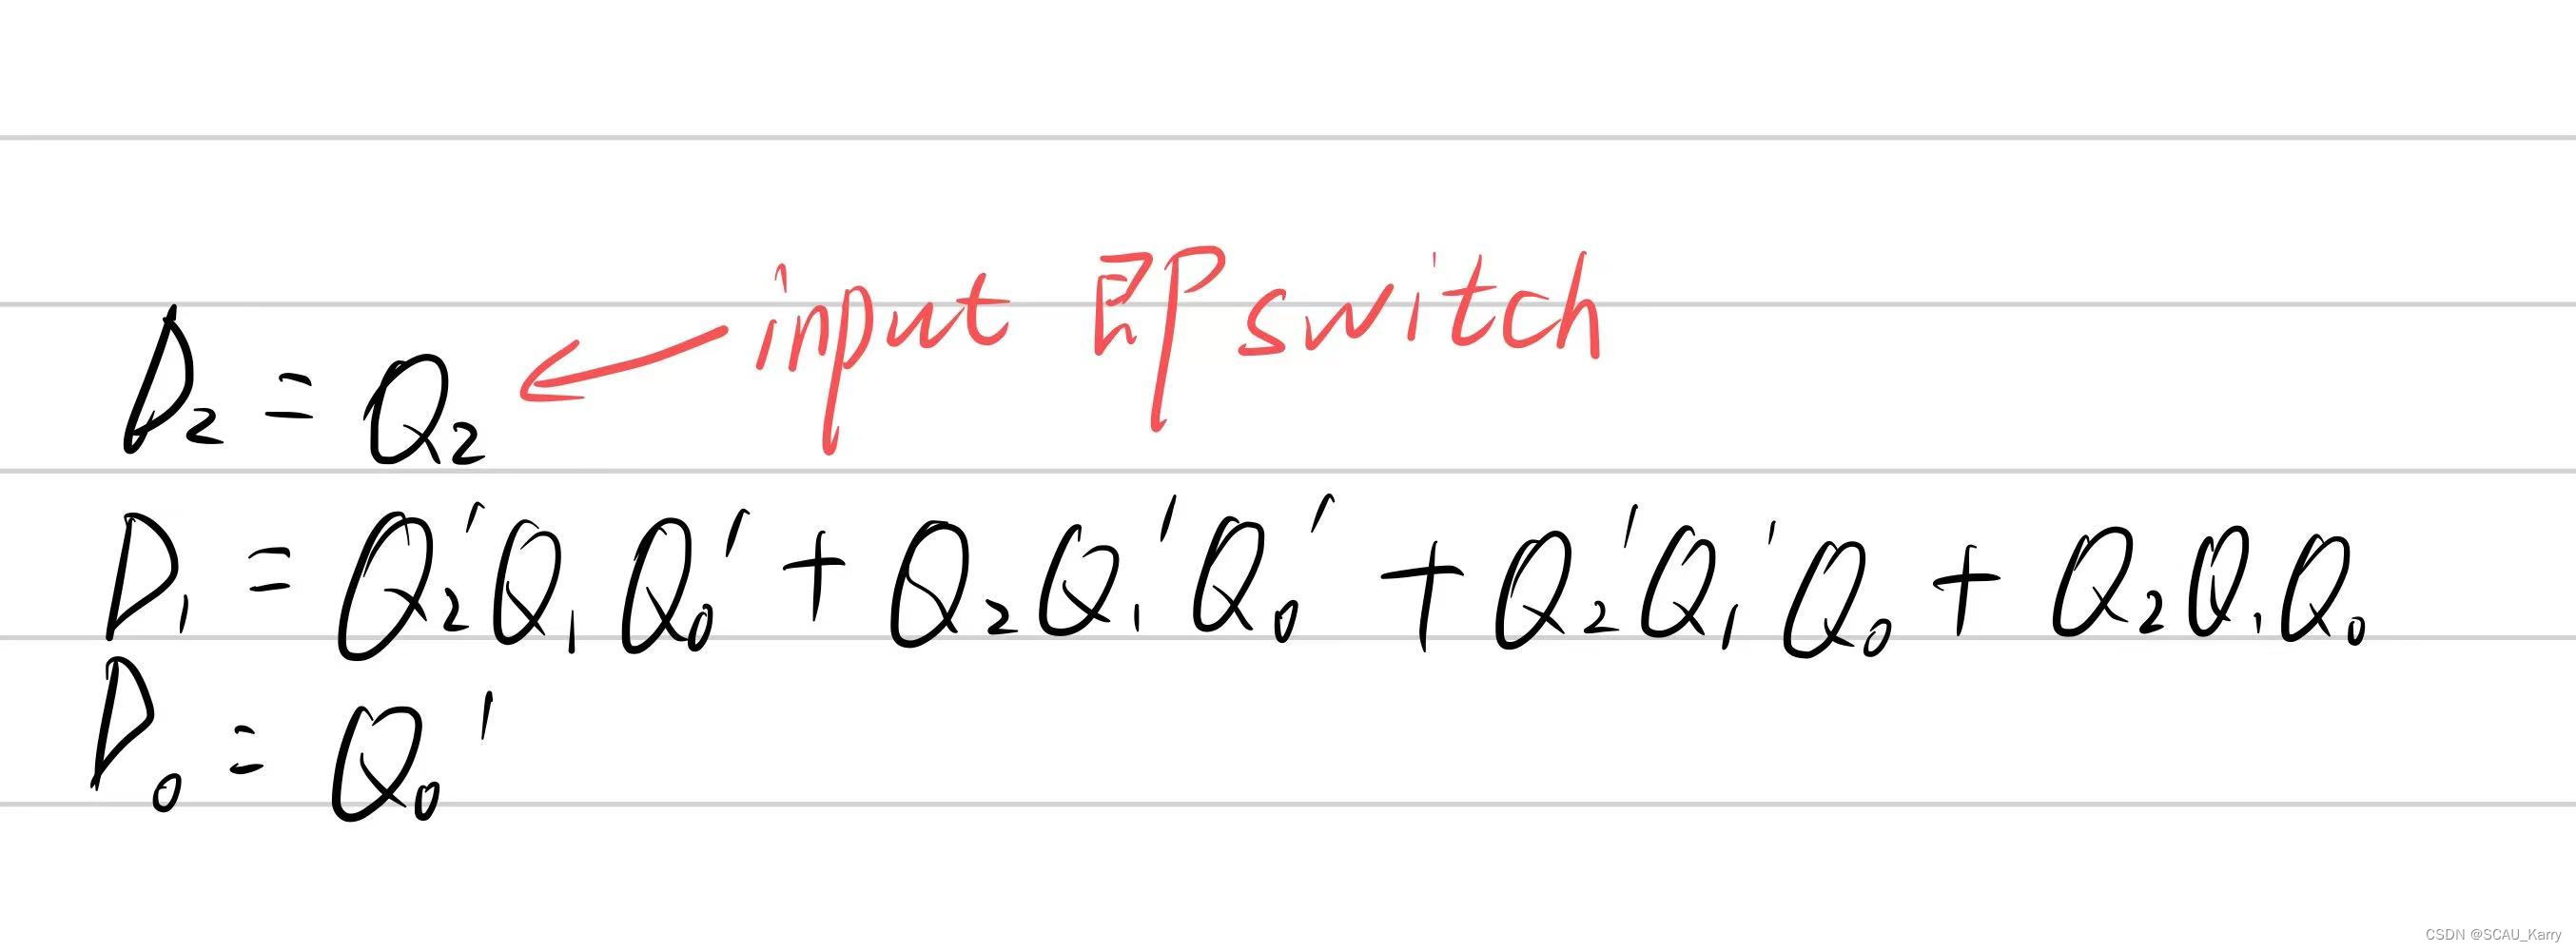 input 即 switch
D₂ = Q₂
D₁ = Q₂'Q₁Q₀' + Q₂Q₁'Q₀' + Q₂'Q₁'Q₀ + Q₂Q₁Q₀
D₀ = Q₀'
CSDN @SCAU_Karry